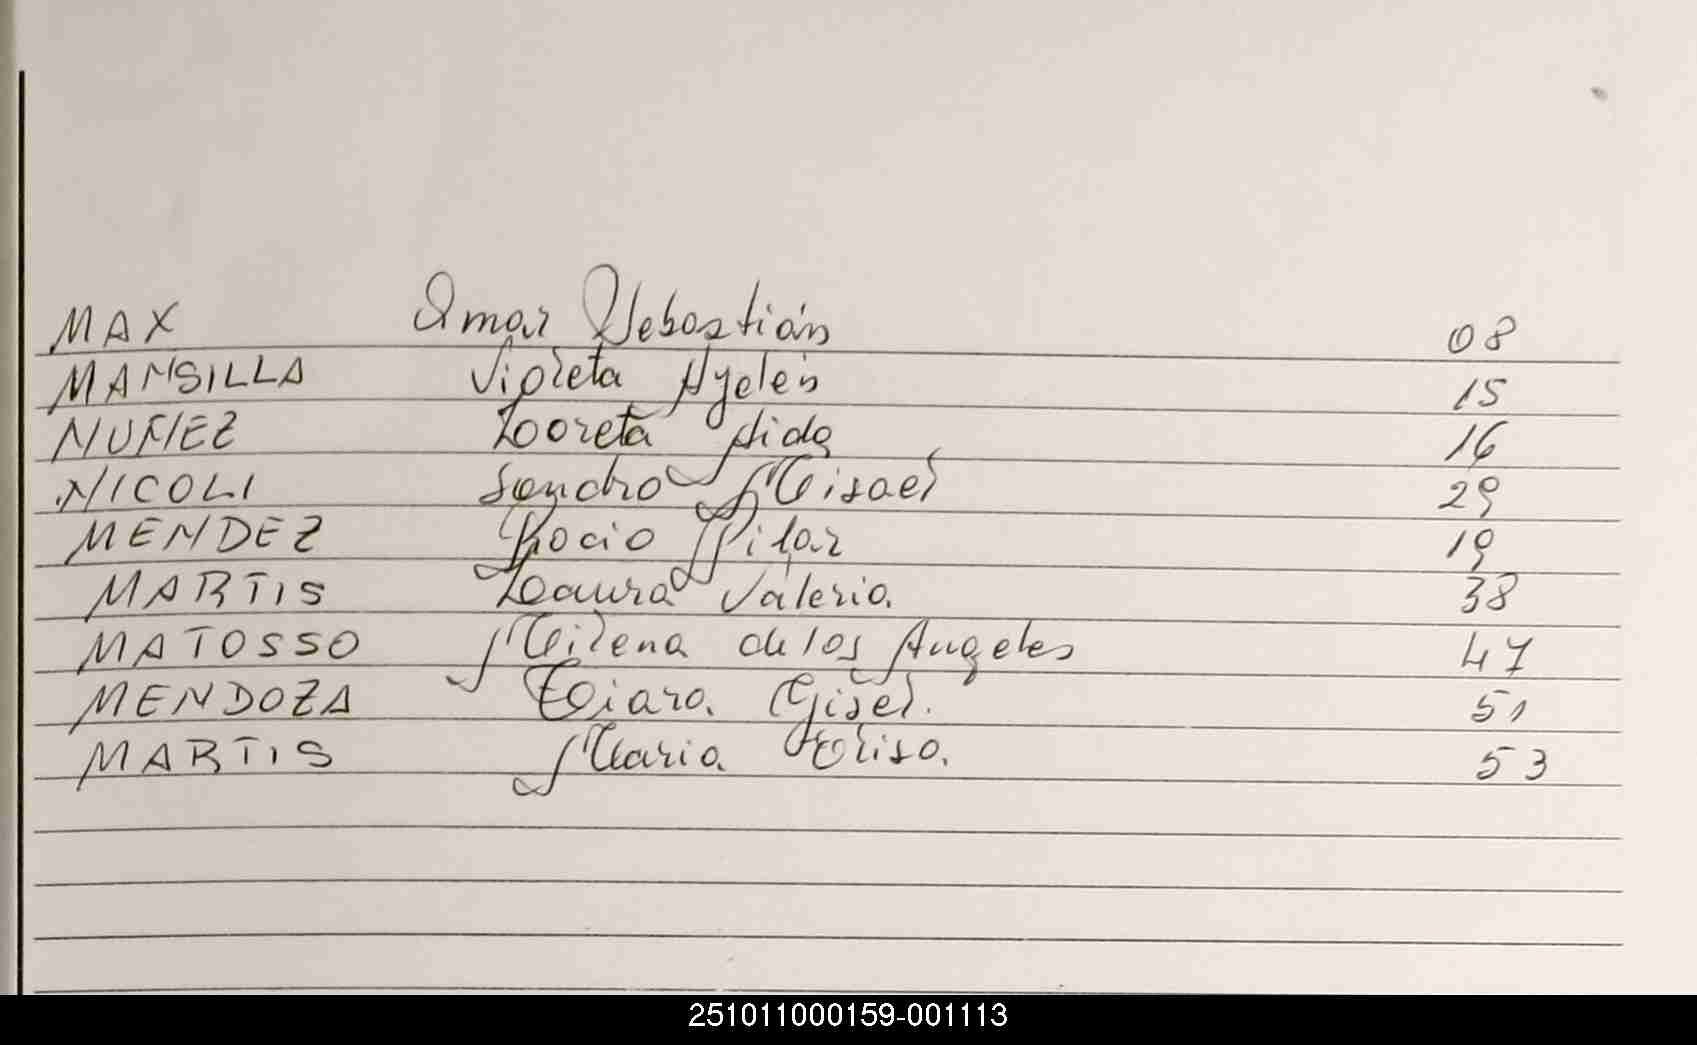 MAX Omar Sebastián 08
MANSILLA Violeta Ayelén 15
NUÑEZ Loreta Aida 16
NICOLI Sandro Misael 29
MENDEZ Rocio Pilar 19
MARTIS Laura Valeria. 38
MATOSSO Milena de los Angeles 47
MENDOZA Giselˑ 51
MARTIS Maria Elisa. 53
251011000159-001113